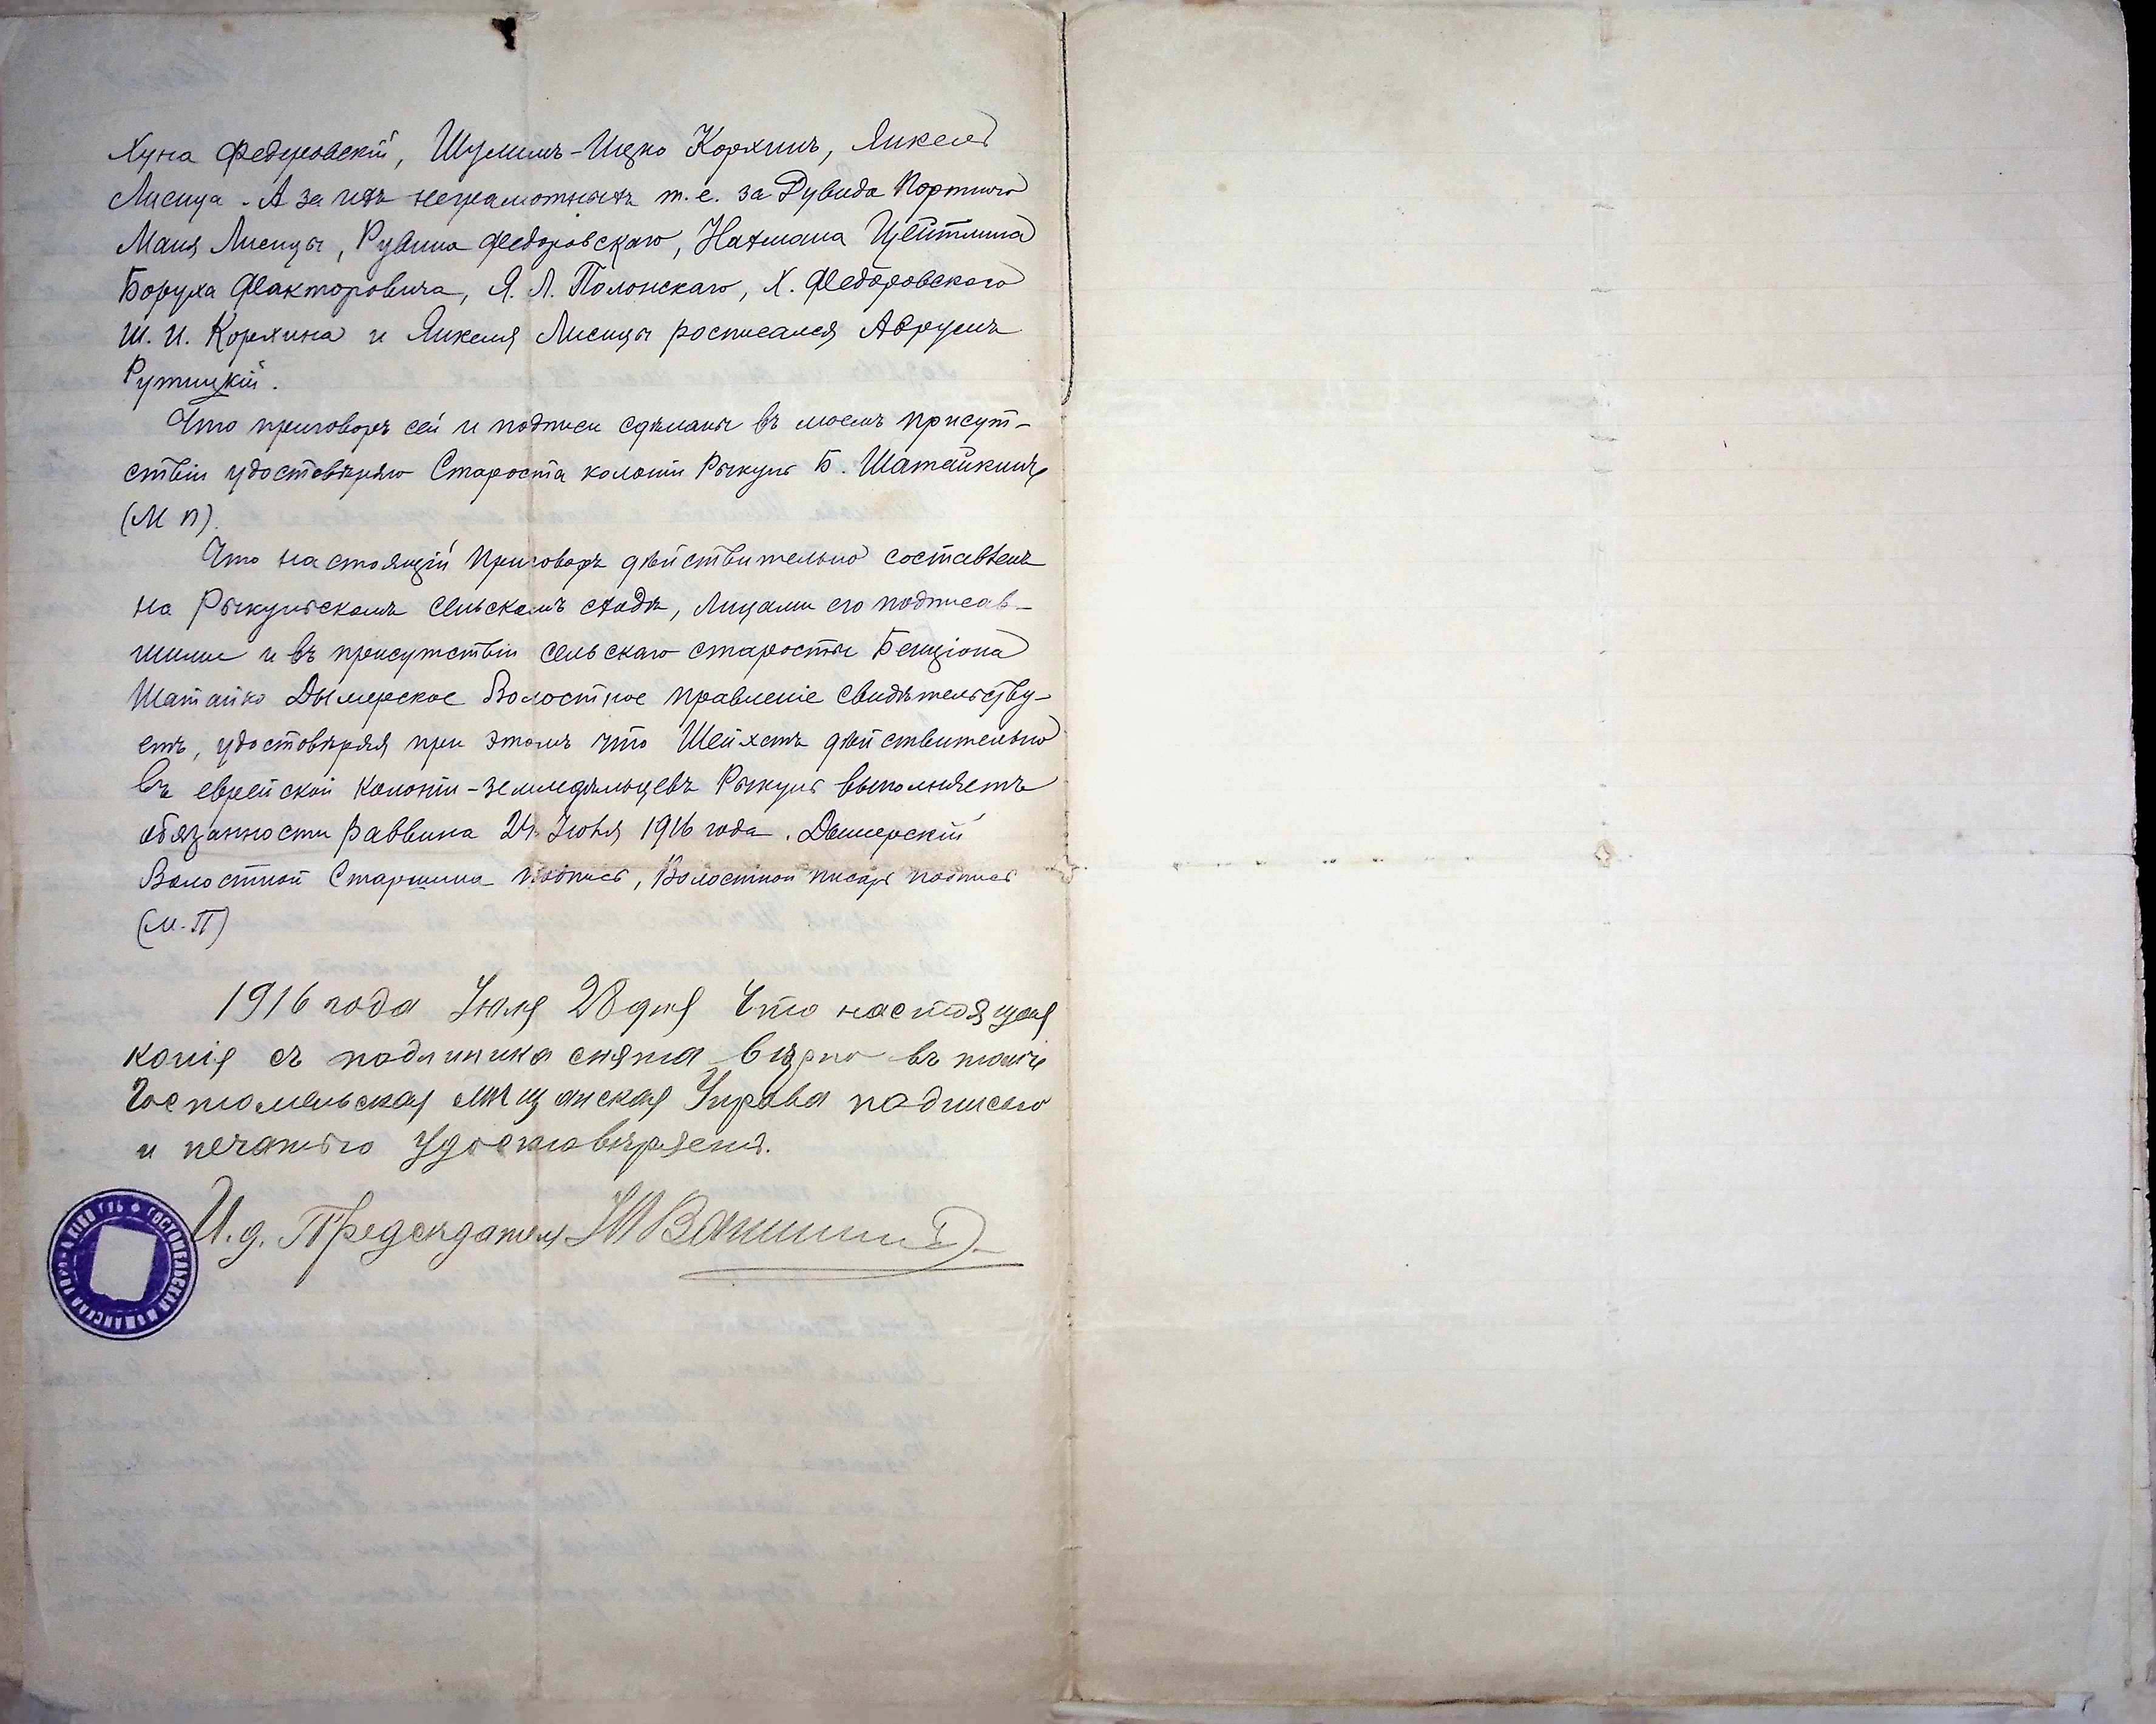 Хуна Федоровскій, Шулимъ-Ицко Корхинъ, Янкель
Лисица. А за ихъ неграмотныхъ т.е. за Дувида Портного
Маня Лисицы, Рувина Федоровскаго, Нахмана Цейтлина
Боруха Факторовича, Я. Л. Полонскаго, Х. Федоровского
Ш. И. Корхина и Янкеля Лисицы росписался Аврумъ
Рутицкій.
Что приговоръ сей и подписи сдѣланы въ моемъ присут-
ствіи удостовѣряю Староста колоніи Рыкунь Б. Шатайкинъ
(М П).
Что настоящій приговоръ дѣйствительно составленъ
на Рыкунскомъ сельскомъ сходѣ, лицами его подписав-
шими и въ присутствіи сельскаго старосты Бенціона
Шатайко Дымерское Волостное правленіе свидѣтельству-
етъ, удостовѣряя при этомъ что Шейхетъ дѣйствительно
въ еврейской колоніи-земледѣльцевъ Рыкунь выполняетъ
обязанности раввина 24 Іюля 1916 года. Дымерскій
Волостной Старшина подпись, Волостной писарь подпись
(М.П)
1916 года Іюля 28 дня Что настоящая
копія съ подлиника снята вѣрно въ томъ
Гостомельская мѣщанская Управа подписью
и печатью удостовѣряетъ.
И.д. Председателя
ГОСТОМЕЛЬСКАЯ МѢЩАНСКАЯ УПРАВА КІЕВ. ГУБ.